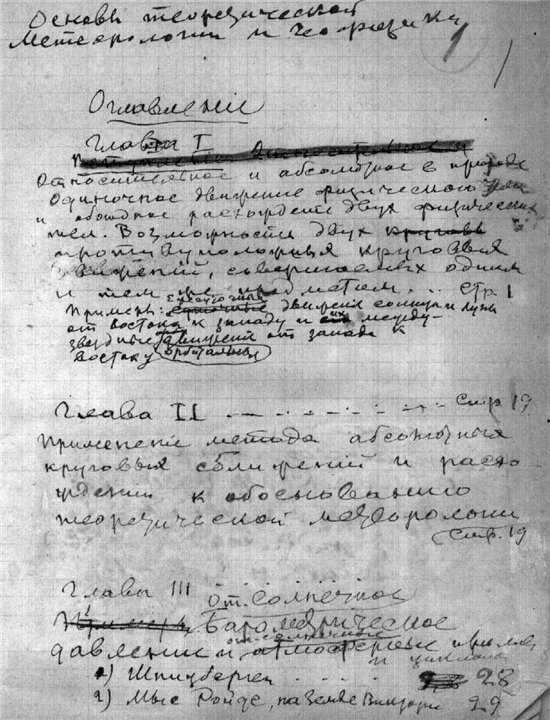 Основы теоретической
метеорологии и геофизики
1
Оглавление
Глава I
Относительное и абсолютное в природе
Одиночное движение физического тела
и обоюдное расхождение двух физических
тел. Возможность двух кругов
противуположных круговых
движений, совершаемых одним
и тем же предметом... Стр. 1
Примеры: суточных движений солнца и луны
от востока к западу и их между-
звездных движений от запада к
востоку орбитальных
Глава II Стр. 19
Применение метода абсолютных
круговых сближений и расхо-
ждений к обоснованию
теоретической метеорологии
Стр. 19
Главы III от. солнечное
Барометрическое
от. солнечные
давление и атмосферных
и циклоны
1) Шпицберген 28
2) Мыс Ройдс, на Земле Виктории 29